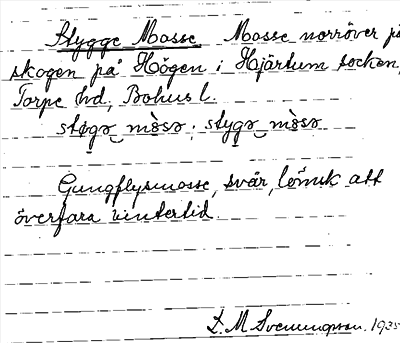 Stygge Mosse Mosse norröver på
skogen på Högen i Hjärtum socken,
Torpe hd, Bohusl.
støgə mòsə ; stygə mòsə
Gungflysmosse, svår, lömsk att
överfara vintertid.
L. M. Svenungsson. 1935